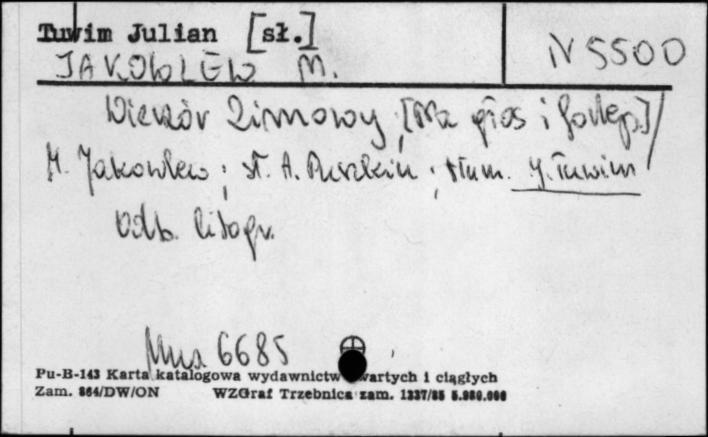 Tuwim Julian [sł.]
JAKOWLEW M. N 5500
Wieczór Zimowy [Na głos i fortep.] /
M. Jakowlew ; sł. A. Puszkin ; tłum. J. Tuwim
Odb. litogr.
Mus 6685
Pu-B-143 Karta katalogowa wydawnictw zwartych i ciągłych
Zam. 864/DW/ON WZGraf Trzebnica zam. 1337/85 5.980.000